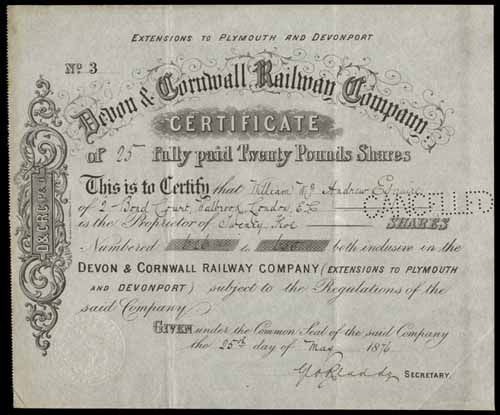 EXTENSIONS TO PLYMOUTH AND DEVONPORT
No. 3
Devon & Cornwall Railway Company
CERTIFICATE
of 25 fully paid Twenty Pounds Shares
This is to Certify that William W. Andrew Esquire
of 2 Bond Court, Walbrook, London, E.C.
CANCELLED
is the Proprietor of Twenty Five SHARES
Numbered to both inclusive in the
DEVON & CORNWALL RAILWAY COMPANY (EXTENSIONS TO PLYMOUTH
AND DEVONPORT) subject to the Regulations of the
said Company.
GIVEN under the Common Seal of the said Company
the 25th day of May 1876
SECRETARY.